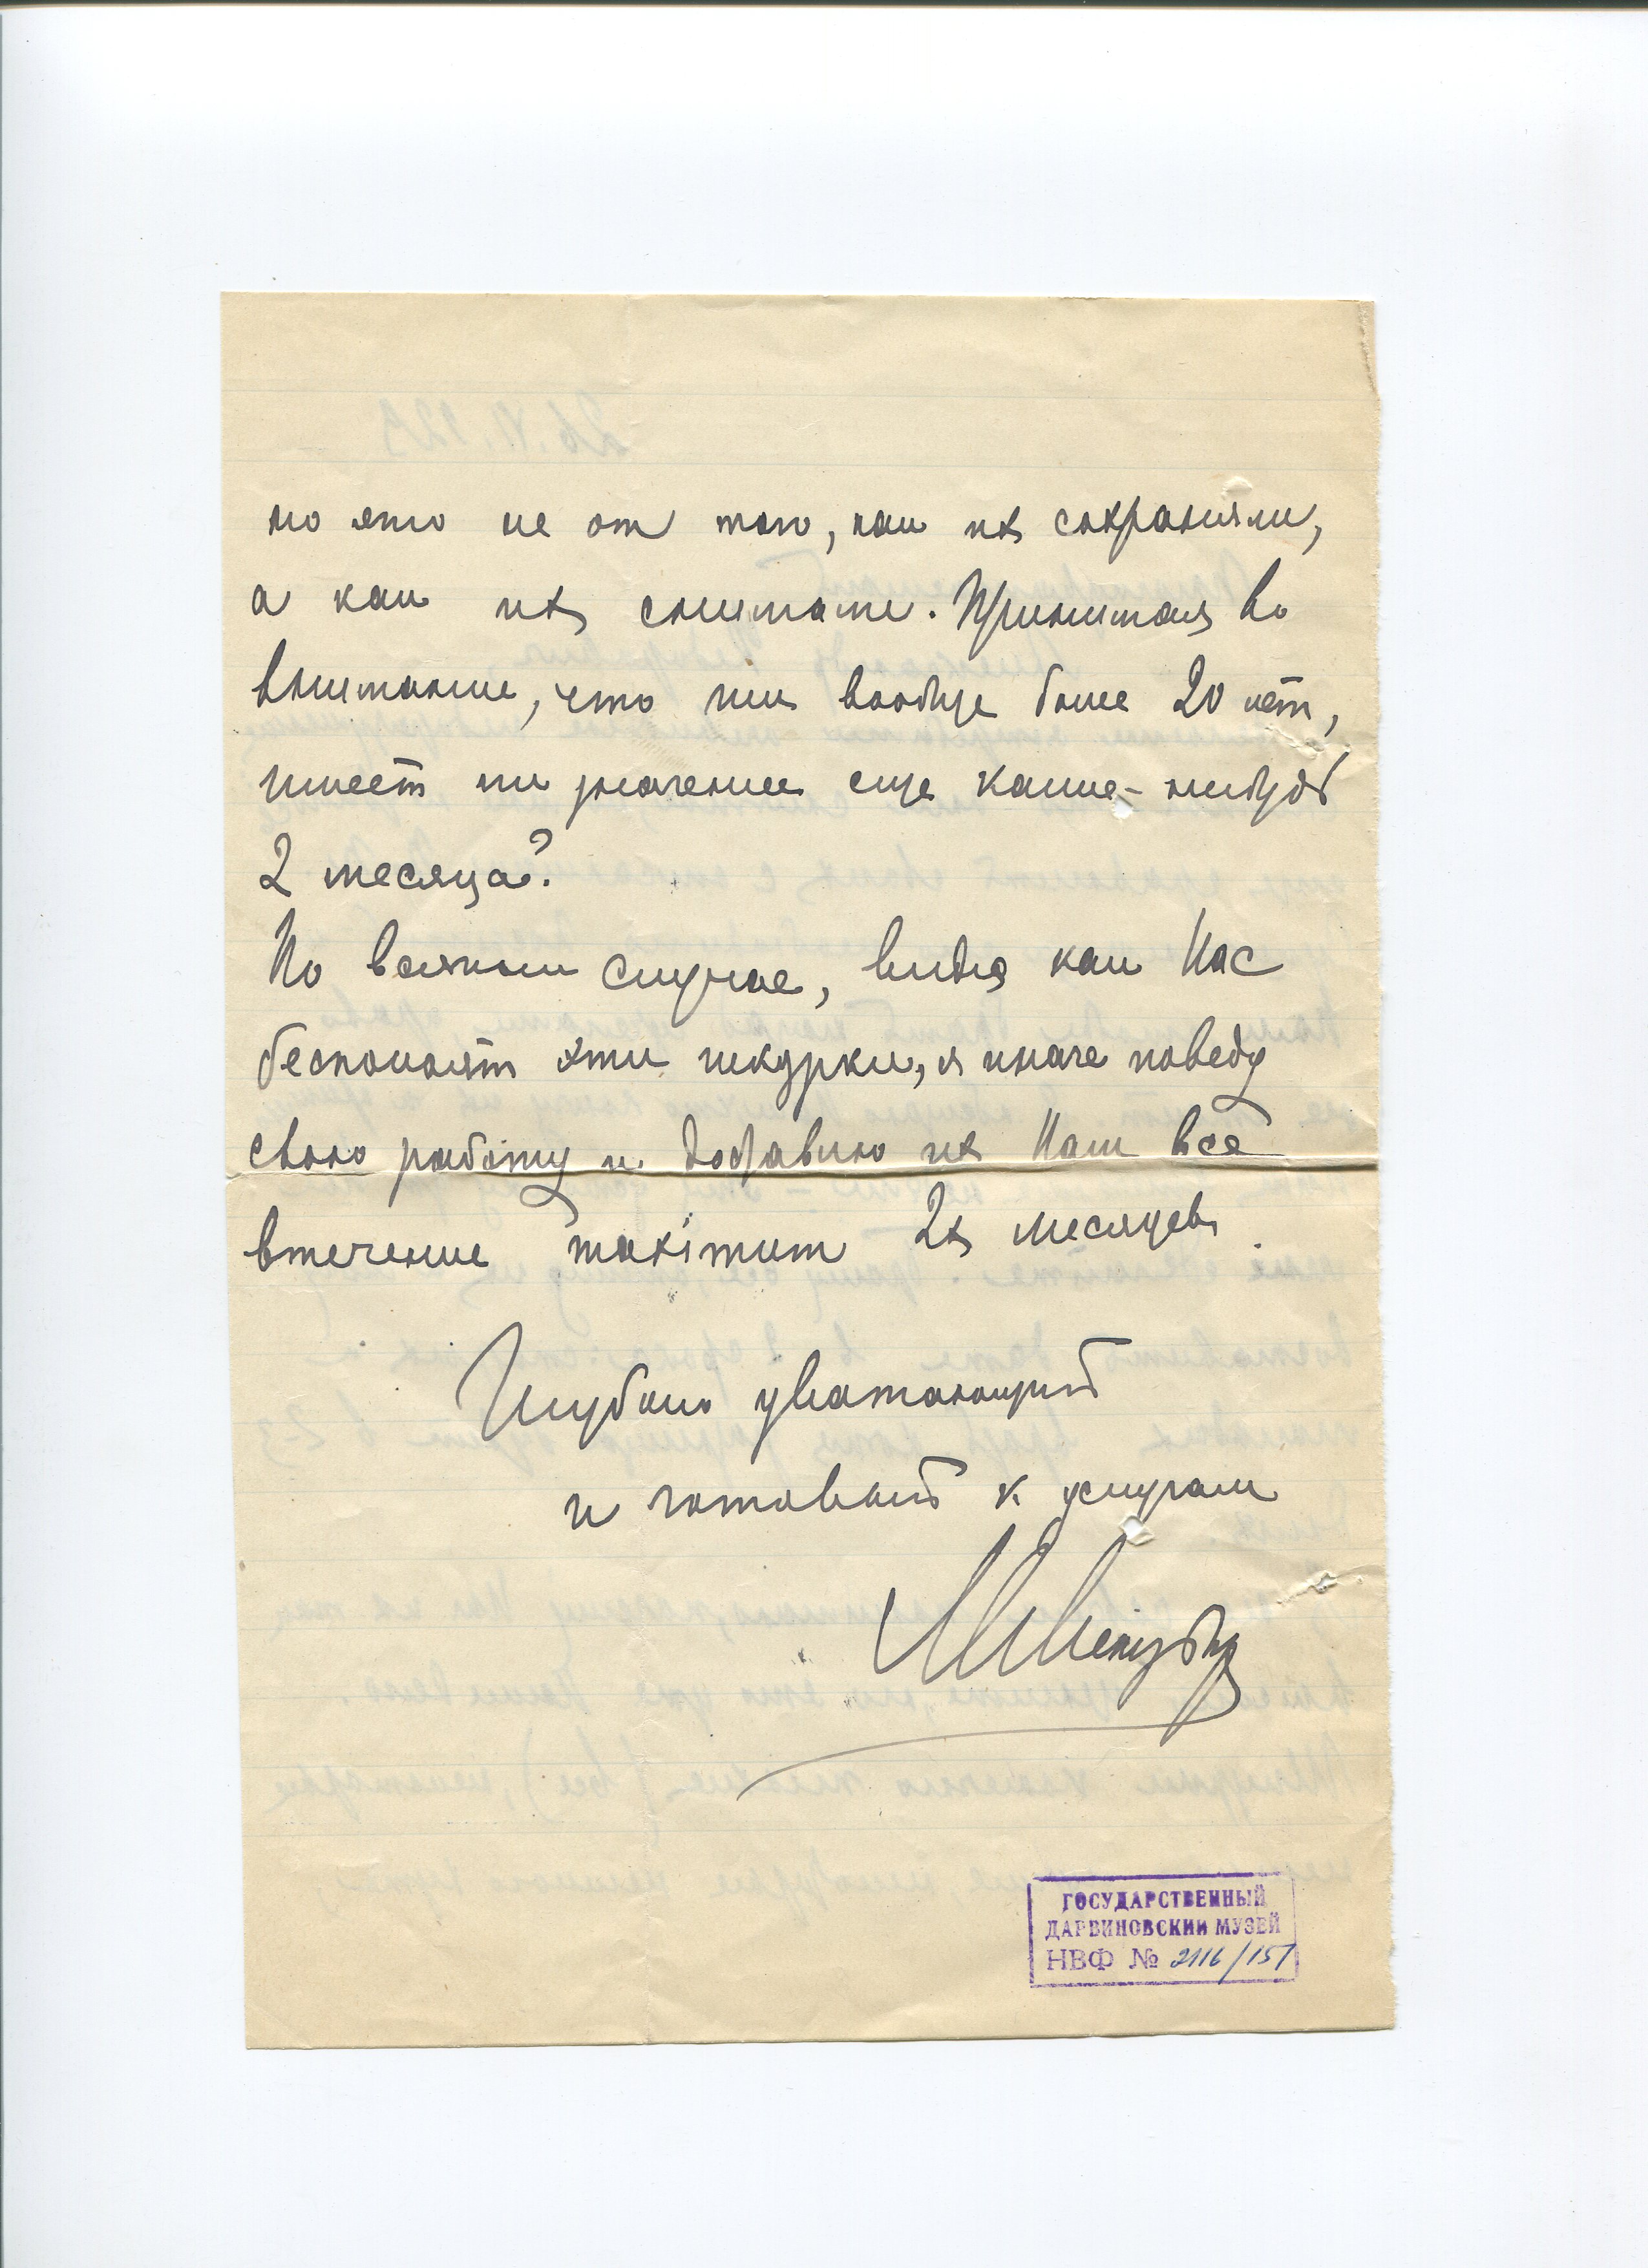 но это не от того, как их сохраняли,
а как их снимали. Принимая во
внимание, что им вообще более 20 лет,
имеет ли значение еще какие-нибудь
2 месяца?
Во всяком случае, видя как Вас
беспокоят эти шкурки, я иначе поведу
свою работу и доставлю их Вам все
втечение максимум 2х месяцев
Глубоко уважающий
и готовый к услугам
ГОСУДАРСТВЕННЫЙ
ДАРВИНОВСКИЙ МУЗЕЙ
НВФ № 2116/151